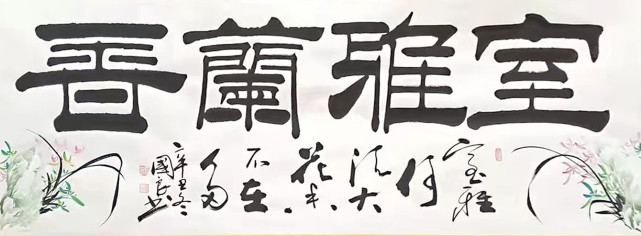 室雅蘭香
室雅
何
须大
花香
不在
多
辛丑冬
國